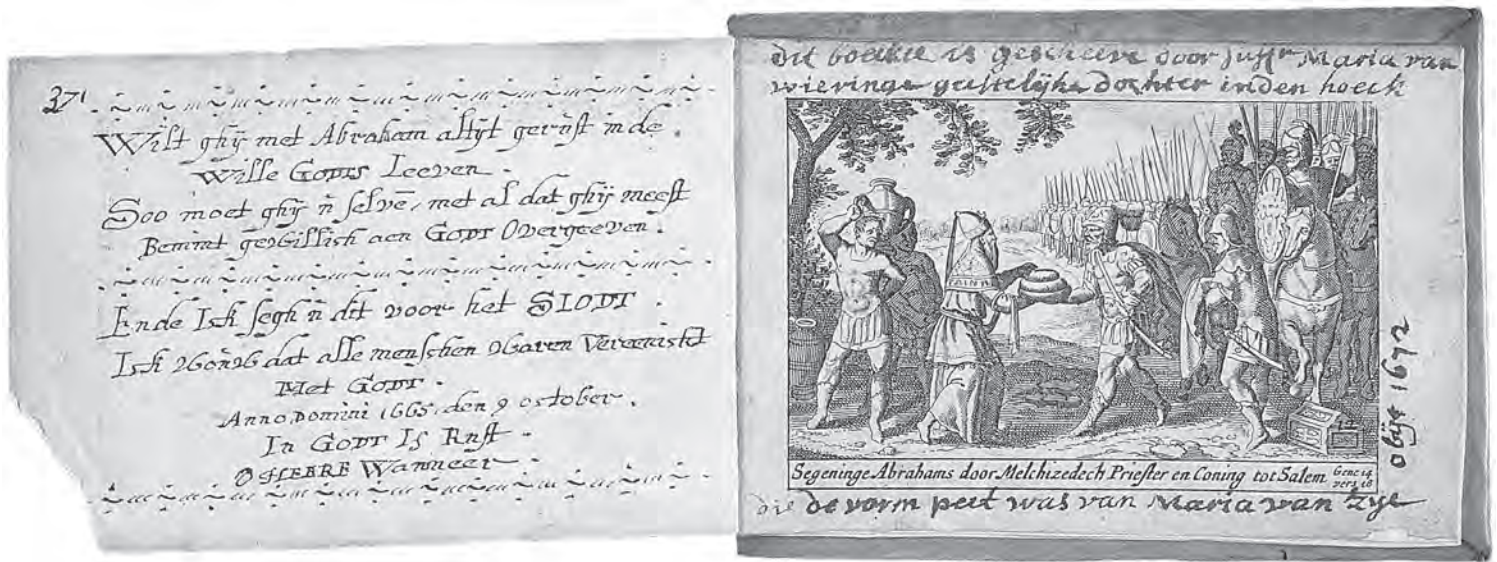 371
Wilt ghij met Abraham altijt gerust in de
Wille GODTS Leeven.
Soo moet ghij ū selvē, met al dat ghij meest
Bemint gewillich aen GODT Overgeeven.
Ende Ick segh ū dit voor het SLODT
Ick wouw dat alle menschen waren Vereenicht
Met GODT.
Anno Domini 1665, den 9 october.
In GODT Is Rust.
O HEERE Wanneer.
dit boeckie is gescheeve door Juffr Maria van
wieringe geestelijke dochter inden hoeck
obijt 1672
Segeninge Abrahams door Melchizedech Priester en Coning tot Salem Gene 14 vers 18
die de vorm peet was van Maria van Zije